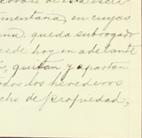 mentaria, en cuyas
queda subrogado
cede hoy en adelante
quitan y apartan
todos los herederos
cho de propiedad,